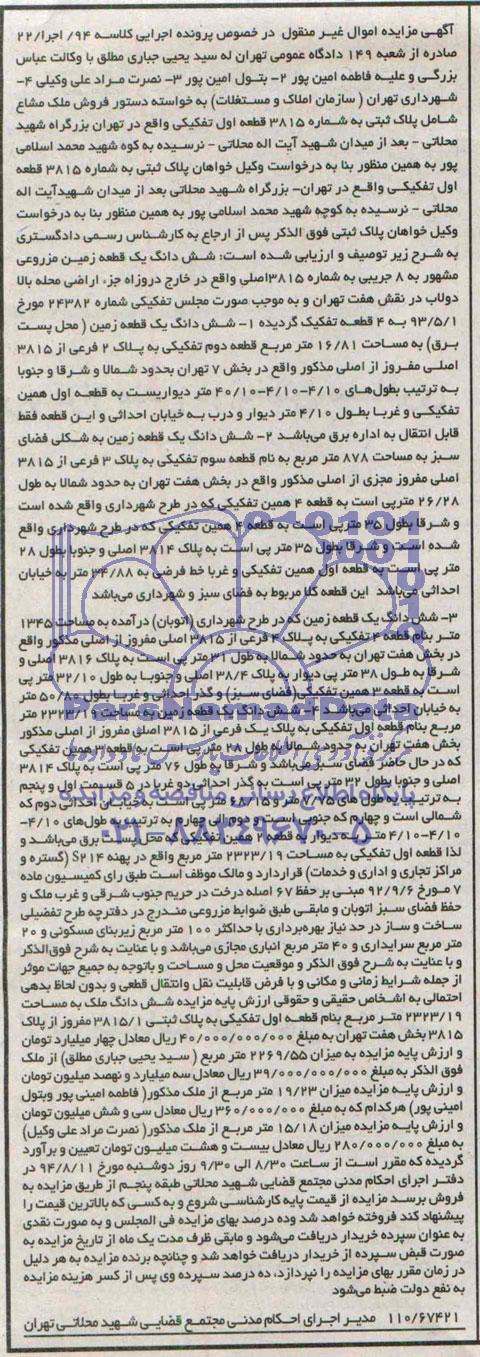 آگهی مزایده اموال غیر منقول در خصوص پرونده اجرایی کلاسه ۹۴/ اجرا/۲۲
صادره از شعبه ۱۴۹ دادگاه عمومی تهران له سید یحیی جباری مطلق با وکالت عباس
بزرگی و علیه فاطمه امین پور ۲- بتول امین پور ۳- نصرت مراد علی وکیلی ۴-
شهرداری تهران ( سازمان املاک و مستغلات) به خواسته دستور فروش ملک مشاع
شامل پلاک ثبتی به شماره ۳۸۱۵ قطعه اول تفکیکی واقع در تهران بزرگراه شهید
محلاتی - بعد از میدان شهید آیت اله محلاتی - نرسیده به کوه شهید محمد اسلامی
پور به همین منظور بنا به درخواست وکیل خواهان پلاک ثبتی به شماره ۳۸۱۵ قطعه
اول تفکیکی واقع در تهران- بزرگراه شهید محلاتی بعد از میدان شهیدآیت اله
محلاتی - نرسیده به کوچه شهید محمد اسلامی پور به همین منظور بنا به درخواست
وکیل خواهان پلاک ثبتی فوق الذکر پس از ارجاع به کارشناس رسمی دادگستری
به شرح زیر توصیف و ارزیابی شده است: شش دانگ یک قطعه زمین مزروعی
مشهور به ۸ جریبی به شماره ۳۸۱۵اصلی واقع در خارج دروازه جزء اراضی محله بالا
دولاب در نقش هفت تهران و به موجب صورت مجلس تفکیکی شماره ۲۴۳۸۲ مورخ
۹۳/۵/۱ به ۴ قطعه تفکیک گردیده ۱- شش دانگ یک قطعه زمین ( محل پست
برق) به مساحت ۱۶/۸۱ متر مربع قطعه دوم تفکیکی به پلاک ۲ فرعی از ۳۸۱۵
اصلی مفروز از اصلی مذکور واقع در بخش ۷ تهران بحدود شمالا و شرقا و جنوبا
به ترتیب بطول‌های ۴/۱۰-۴/۱۰-۴۰/۱۰ متر دیواریست به قطعه اول همین
تفکیکی و غربا بطول ۴/۱۰ متر دیوار و درب به خیابان احداثی و این قطعه فقط
قابل انتقال به اداره برق می‌باشد ۲- شش دانگ یک قطعه زمین به شکلی فضای
سبز به مساحت ۸۷۸ متر مربع به نام قطعه سوم تفکیکی به پلاک ۳ فرعی از ۳۸۱۵
اصلی مفروز مجزی از اصلی مذکور واقع در بخش هفت تهران به حدود شمالا به طول
۲۶/۲۸ مترپی است به قطعه ۴ همین تفکیکی که در طرح شهرداری واقع شده است
و شرقا بطول ۳۵ مترپی است به قطعه ۴ همین تفکیکی که در طرح شهرداری واقع
شده است و شرقا بطول ۳۵ متر پی است به پلاک ۳۸۱۴ اصلی و جنوبا بطول ۲۸
متر پی است به قطعه اول همین تفکیکی و غربا خط فرضی به ۳۴/۸۸ متر به خیابان
احداثی می‌باشد این قطعه کلا مربوط به فضای سبز و شهرداری می‌باشد
۳- شش دانگ یک قطعه زمین که در طرح شهرداری (اتوبان) درآمده به مساحت ۱۳۴۵
متر بنام قطعه ۴ تفکیکی به پلاک ۴ فرعی از ۳۸۱۵ اصلی مفروز از اصلی مذکور واقع
در بخش هفت تهران به حدود شمالا به طول ۳۱ متر پی است به پلاک ۳۸۱۶ اصلی و
شرقا به طول ۳۸ متر پی دیوار به پلاک ۳۸/۴ اصلی و جنوبا به طول ۳۲/۱۰ متر پی
است به قطعه ۳ همین تفکیکی(فضای سبز) و گذر احداثی و غربا بطول ۵۰/۸۰ متر
به خیابان احداثی می‌باشد ۴- شش دانگ یک قطعه زمین به مساحت ۲۳۲۳/۱۹ متر
مربع بنام قطعه اول تفکیکی به پلاک یک فرعی از ۳۸۱۵ اصلی مفروز از اصلی مذکور
بخش هفت تهران به حدود شمالا به طول ۲۸ متر پی است به قطعه ۳ همین تفکیکی
که در حال حاضر فضای سبز می‌باشد و شرقا به طول ۷۶ متر پی است به پلاک ۳۸۱۴
اصلی و جنوبا بطول ۳۲ متر پی است به گذر احداثی و غربا در ۵ قسمت اول و پنجم
به ترتیب به طول های ۷/۷۵ متر و ۶۸/۱۵ متر پی است به خیابان احداثی دوم که
شمالی است و چهارم که جنوبی است و سوم الی چهارم به ترتیب به طول‌های ۴/۱۰-
۴/۱۰-۴/۱۰ متر به دیوار به قطعه ۲ همین تفکیکی که محل پست برق می‌باشد و
لذا قطعه اول تفکیکی به مساحت ۲۳۲۳/۱۹ متر مربع واقع در پهنه S۲۱۴ (گستره و
مراکز تجاری و اداری و خدمات) قراردارد و مالک موظف است طبق رای کمیسیون ماده
۷ مورخ ۹۲/۹/۶ مبنی بر حفظ ۶۷ اصله درخت در حریم جنوب شرقی و غرب ملک و
حفظ فضای سبز اتوبان و مابقی طبق ضوابط مزروعی مندرج در دفترچه طرح تفضیلی
ساخت و ساز در حد نیاز بهره‌برداری با حداکثر ۱۰۰ متر مربع زیربنای مسکونی و ۲۰
متر مربع سرایداری و ۴۰ متر مربع انباری مجازی می‌باشد و با عنایت به شرح فوق‌الذکر
و با عنایت به شرح فوق الذکر و موقعیت محل و مساحت و باتوجه به جمیع جهات موثر
از جمله شرایط زمانی و مکانی و با فرض قابلیت نقل وانتقال قطعی و بدون لحاظ بدهی
احتمالی به اشخاص حقیقی و حقوقی ارزش پایه مزایده شش دانگ ملک به مساحت
۲۳۲۳/۱۹ متر مربع بنام قطعه اول تفکیکی به پلاک ثبتی ۳۸۱۵/۱ مفروز از پلاک
۳۸۱۵ بخش هفت تهران به مبلغ ۴۰/۰۰۰/۰۰۰/۰۰۰ ریال معادل چهار میلیارد تومان
و ارزش پایه مزایده به میزان ۲۲۶۹/۵۵ متر مربع ( سید یحیی جباری مطلق) از ملک
فوق الذکر به مبلغ ۳۹/۰۰۰/۰۰۰/۰۰۰ ریال معادل سه میلیارد و نهصد میلیون تومان
و ارزش پایه مزایده میزان ۱۹/۲۳ متر مربع از ملک مذکور( فاطمه امینی پور وبتول
امینی پور) هرکدام که به مبلغ ۳۶۰/۰۰۰/۰۰۰ ریال معادل سی و شش میلیون تومان
و ارزش پایه مزایده میزان ۱۵/۱۸ متر مربع از ملک مذکور( نصرت مراد علی وکیل)
به مبلغ ۲۸۰/۰۰۰/۰۰۰ ریال معادل بیست و هشت میلیون تومان تعیین و برآورد
گردیده که مقرر است از ساعت ۸/۳۰ الی ۹/۳۰ روز دوشنبه مورخ ۹۴/۸/۱۱ در
دفتر اجرای احکام مدنی مجتمع قضایی شهید محلاتی طبقه پنجم از طریق مزایده به
فروش برسد مزایده از قیمت پایه کارشناسی شروع و به کسی که بالاترین قیمت را
پیشنهاد کند فروخته خواهد شد وده درصد بهای مزایده فی المجلس و به صورت نقدی
به عنوان سپرده خریدار دریافت می‌شود و مابقی ظرف مدت یک ماه از تاریخ مزایده به
صورت قبض سپرده از خریدار دریافت خواهد شد و چنانچه برنده مزایده به هر دلیل
در زمان مقرر بهای مزایده را نپردازد، ده درصد سپرده وی پس از کسر هزینه مزایده
به نفع دولت ضبط می‌شود
۱۱۰/۶۷۴۲۱ مدیر اجرای احکام مدنی مجتمع قضایی شهید محلاتی تهران
پایگاه اطلاع رسانی مناقصه و مزایده
۰۲۱-۸۸۳۴۹۶۷۰-۵